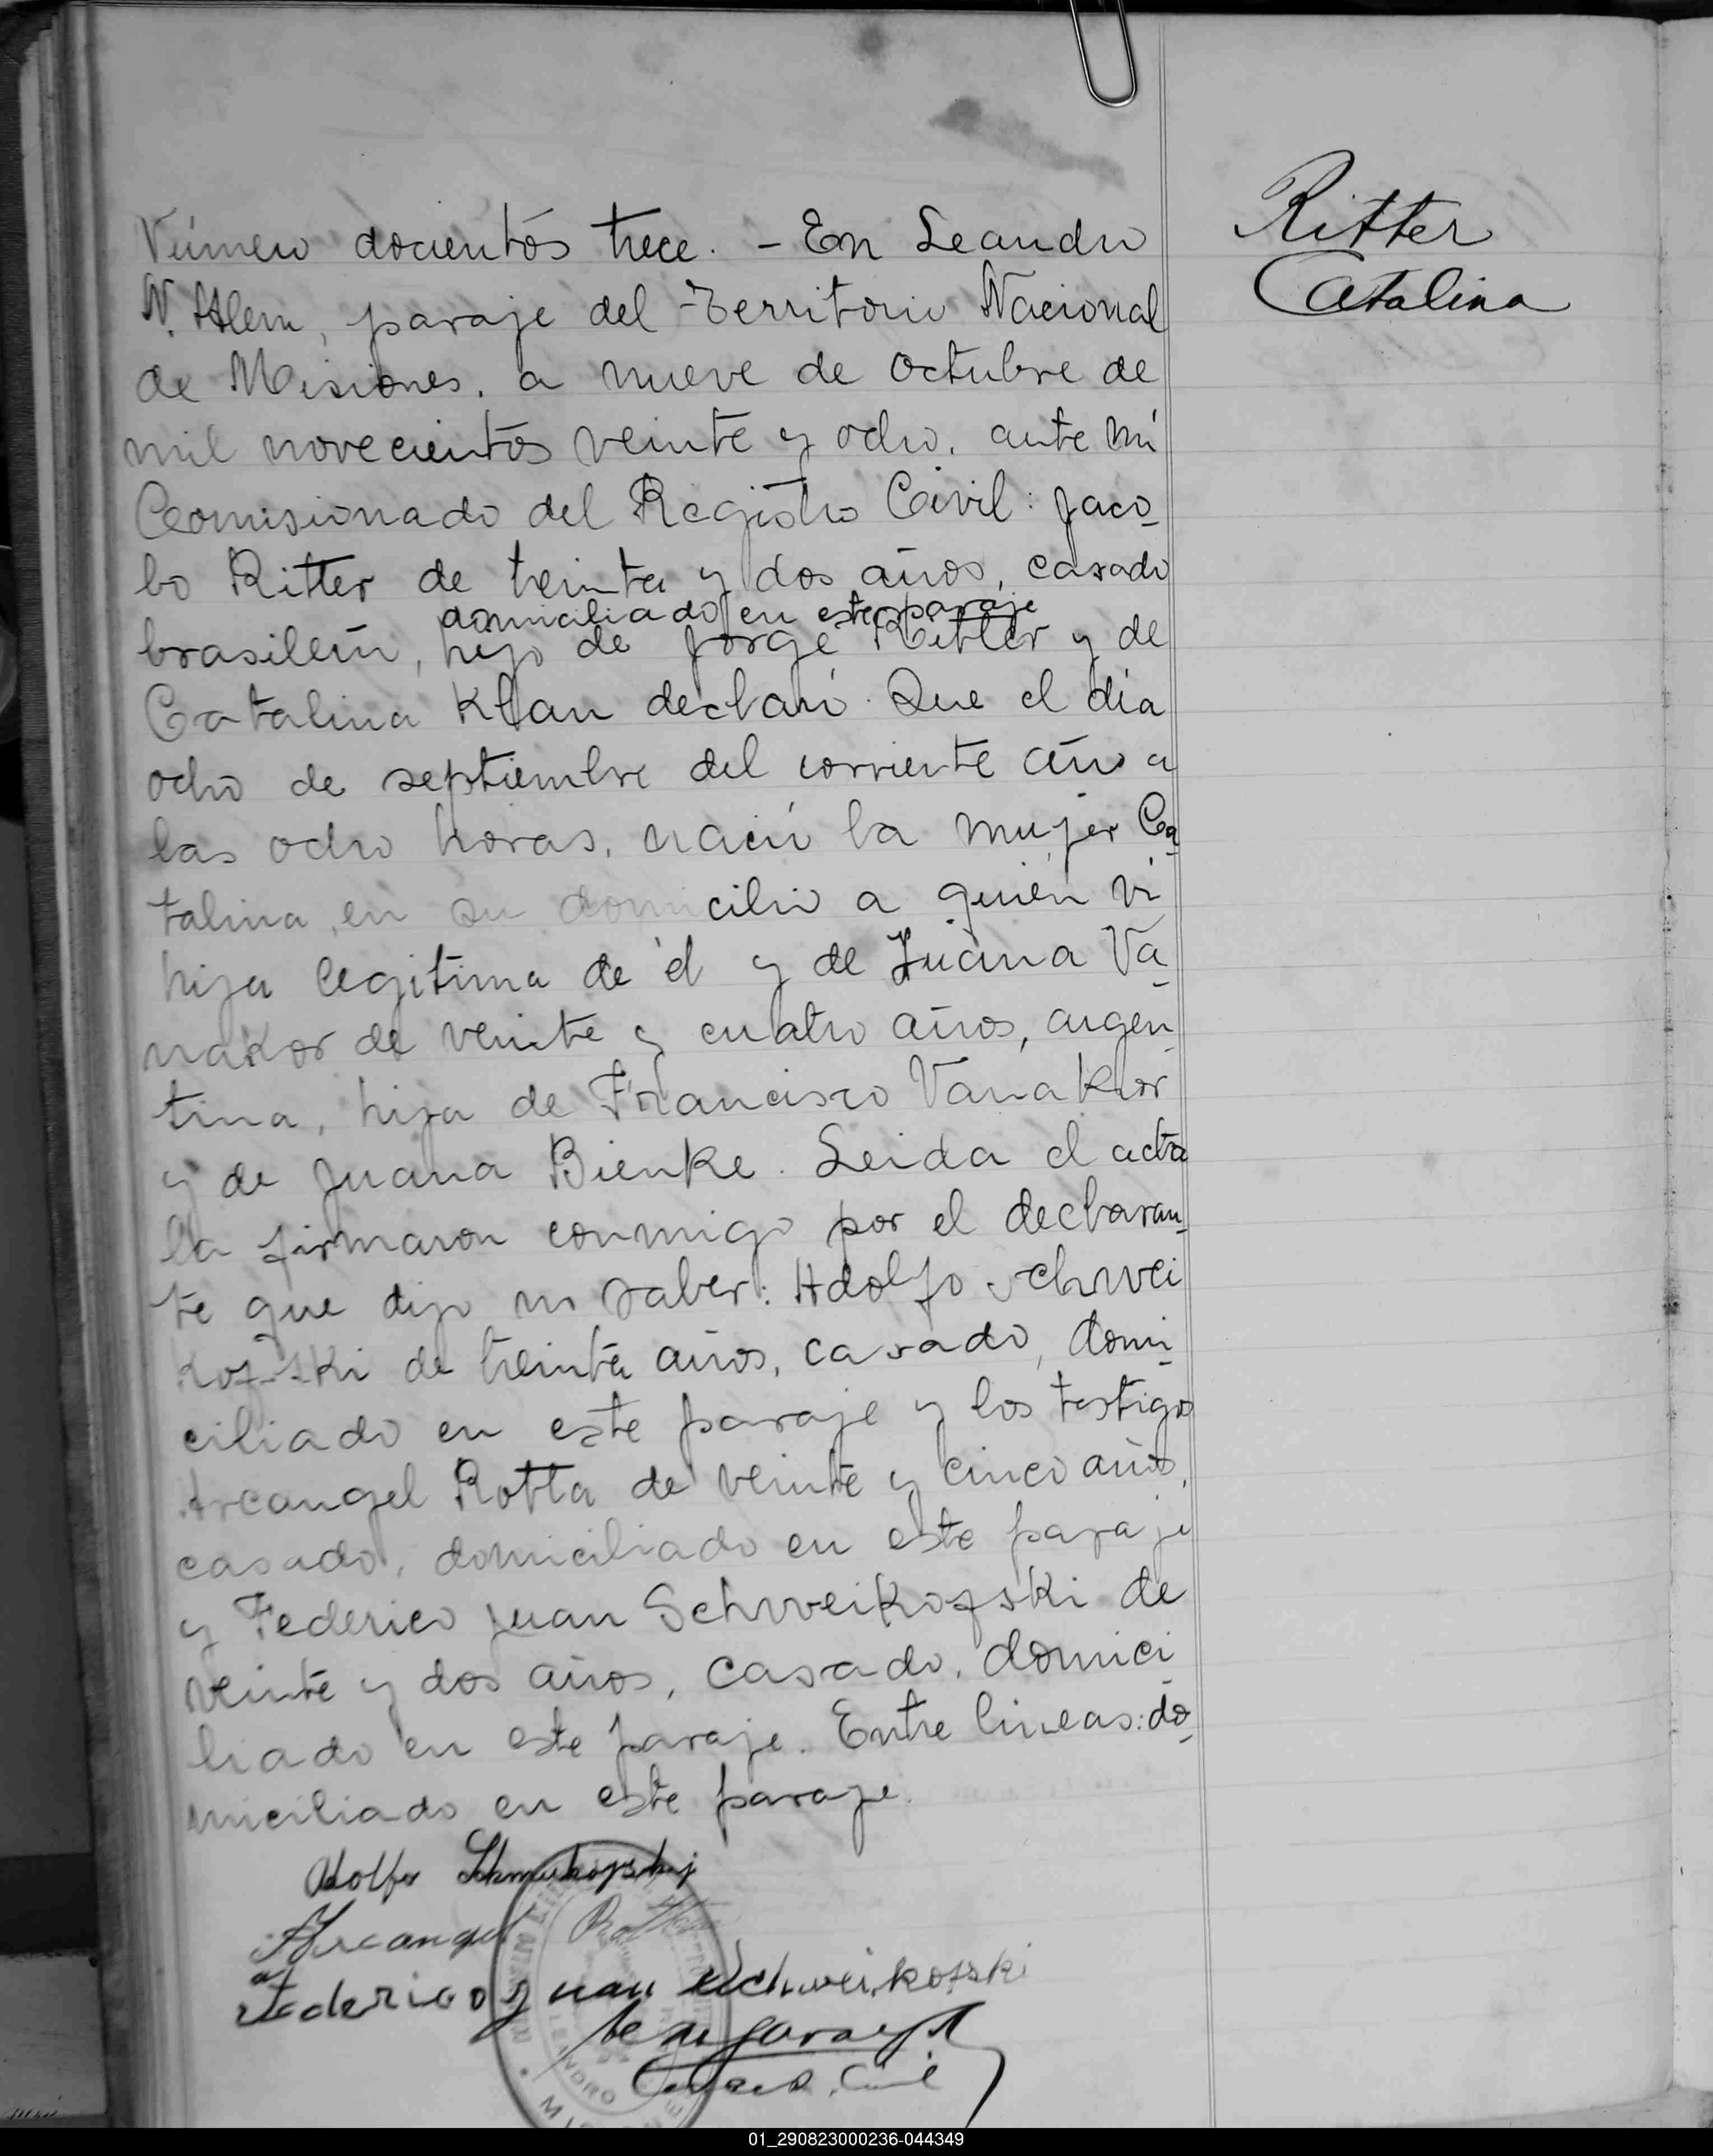 Número docientos trece. - En Leandro
N. Alem, paraje del Territorio Nacional
de Misiones, a nueve de Octubre de
mil novecientos veinte y ocho, ante mí
Comisionado del Registro Civil: Jaco-
bo Ritter de treinta y dos años, casado
domiciliado en este paraje
brasilero, hijo de Jorge Ritter y de
Catalina Klan declaró: Que el día
ocho de septiembre del corriente año a
las ocho horas, nació la mujer Ca-
talina, en su domicilio a quién ví
hija legitima de él y de Juana Va-
nakor de veinte y cuatro años, argen-
tina, hija de Francisco Vanakor
y de Juana Bienke. Leida el acta
la firmaron conmigo por el declaran-
te que dijo no saber: Adolfo Schwei
kofski de treinta años, casado, domi-
ciliado en este paraje y los testigos
Arcangel Rotta de veinte y cinco años,
casado, domiciliado en este paraje
y Federico Juan Schweikofski de
veinte y dos años, casado, domici-
liado en este paraje. Entre lineas: do-
miciliado en este paraje.
Adolfo Schweikofskij
Arcangel Rotta
Federico Juan Schweikofski
Ritter
Catalina
LEANDRO
01_290823000236-044349